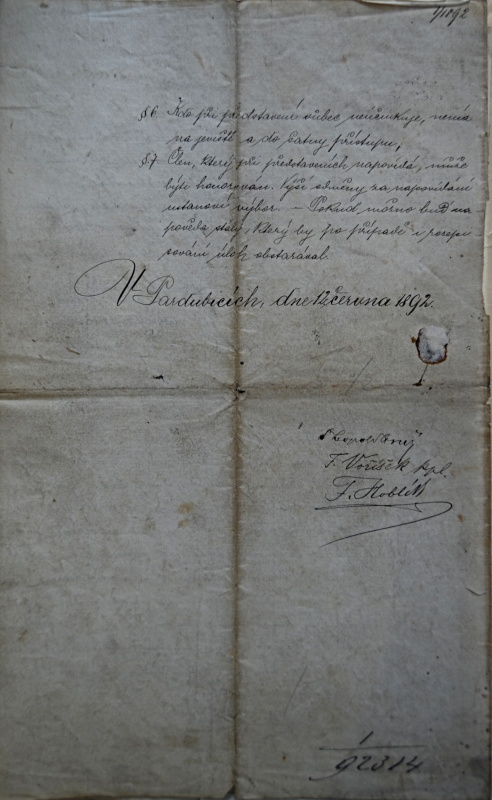 1/1892
§ 6 Kdo při představení vůbec neúčinkuje, nemá
na jeviště a do šatny přístupu,
§ 7. Člen, který při představeních napovídá, může
býti honorován. Výši odměny za napovídání
ustanoví výbor. — Pokud možno buď na
pověda stálý, který by po případě i rozepi
sování úloh obstarával.
V Pardubicích, dne 12 června 1892.
F. Voříšek kpl.
F. Hoblík
1
92314